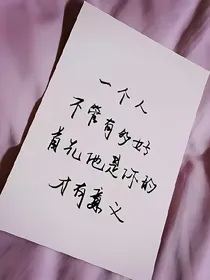 一个人
不管有多好
首先他是你的
才有意义